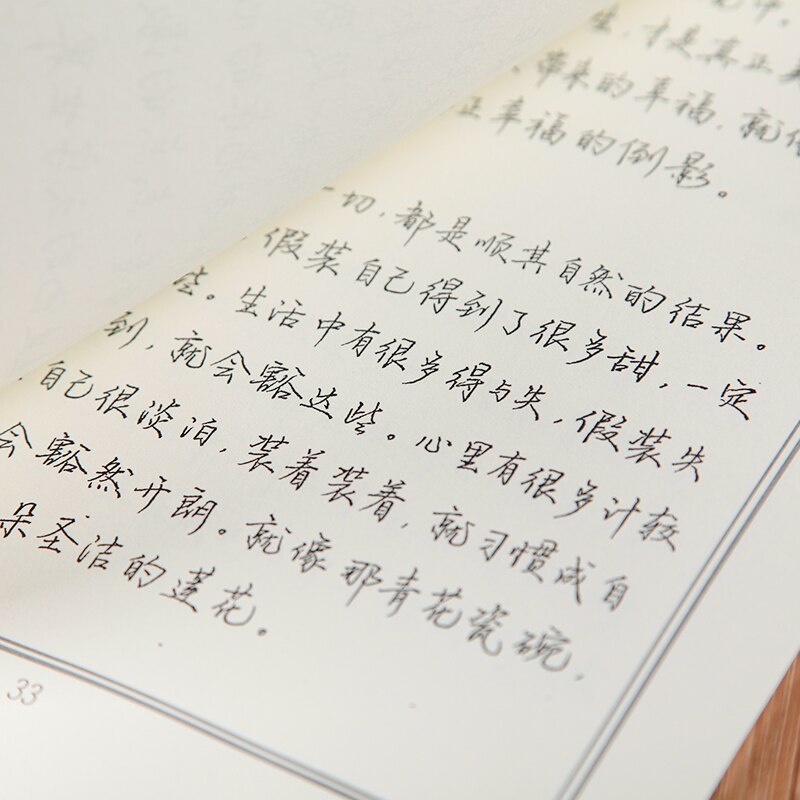 中,
生,才是真正
带来的幸福,就像
正幸福的倒影。
一切,都是顺其自然的结果。
假装自己得到了很多甜,一定
些。生活中有很多得与失,假装失
到,就会豁达些。心里有很多计较
自己很淡泊,装着装着,就习惯成自
会豁然开朗。就像那青花瓷碗,
朵圣洁的莲花。
33